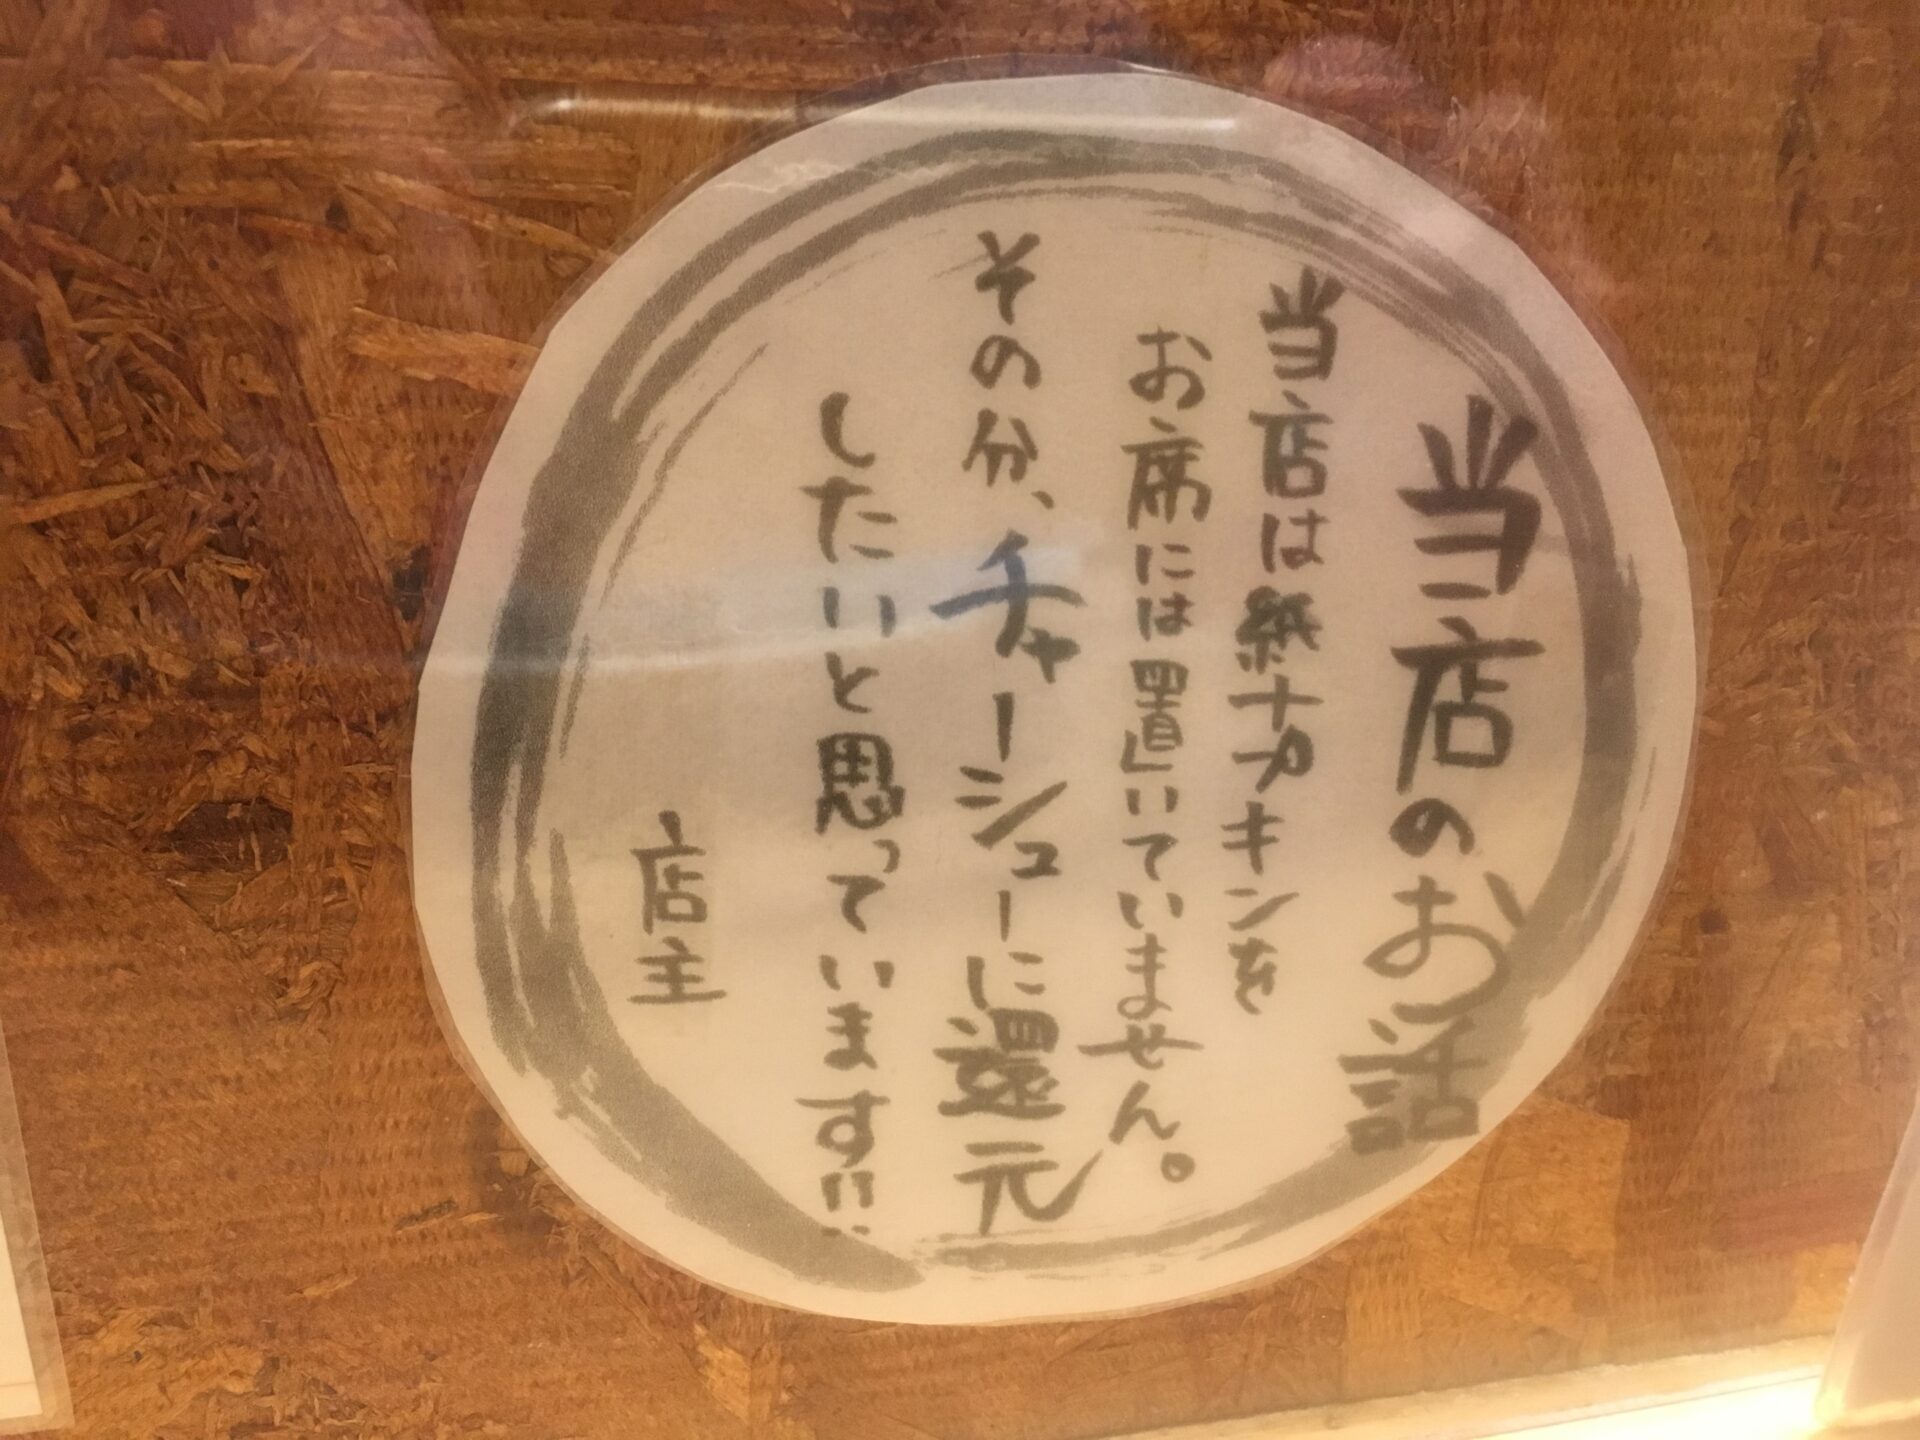 当店のお話
当店は紙ナプキンを
お席には置いていません。
その分、チャーシューに還元
したいと思っています!!
店主